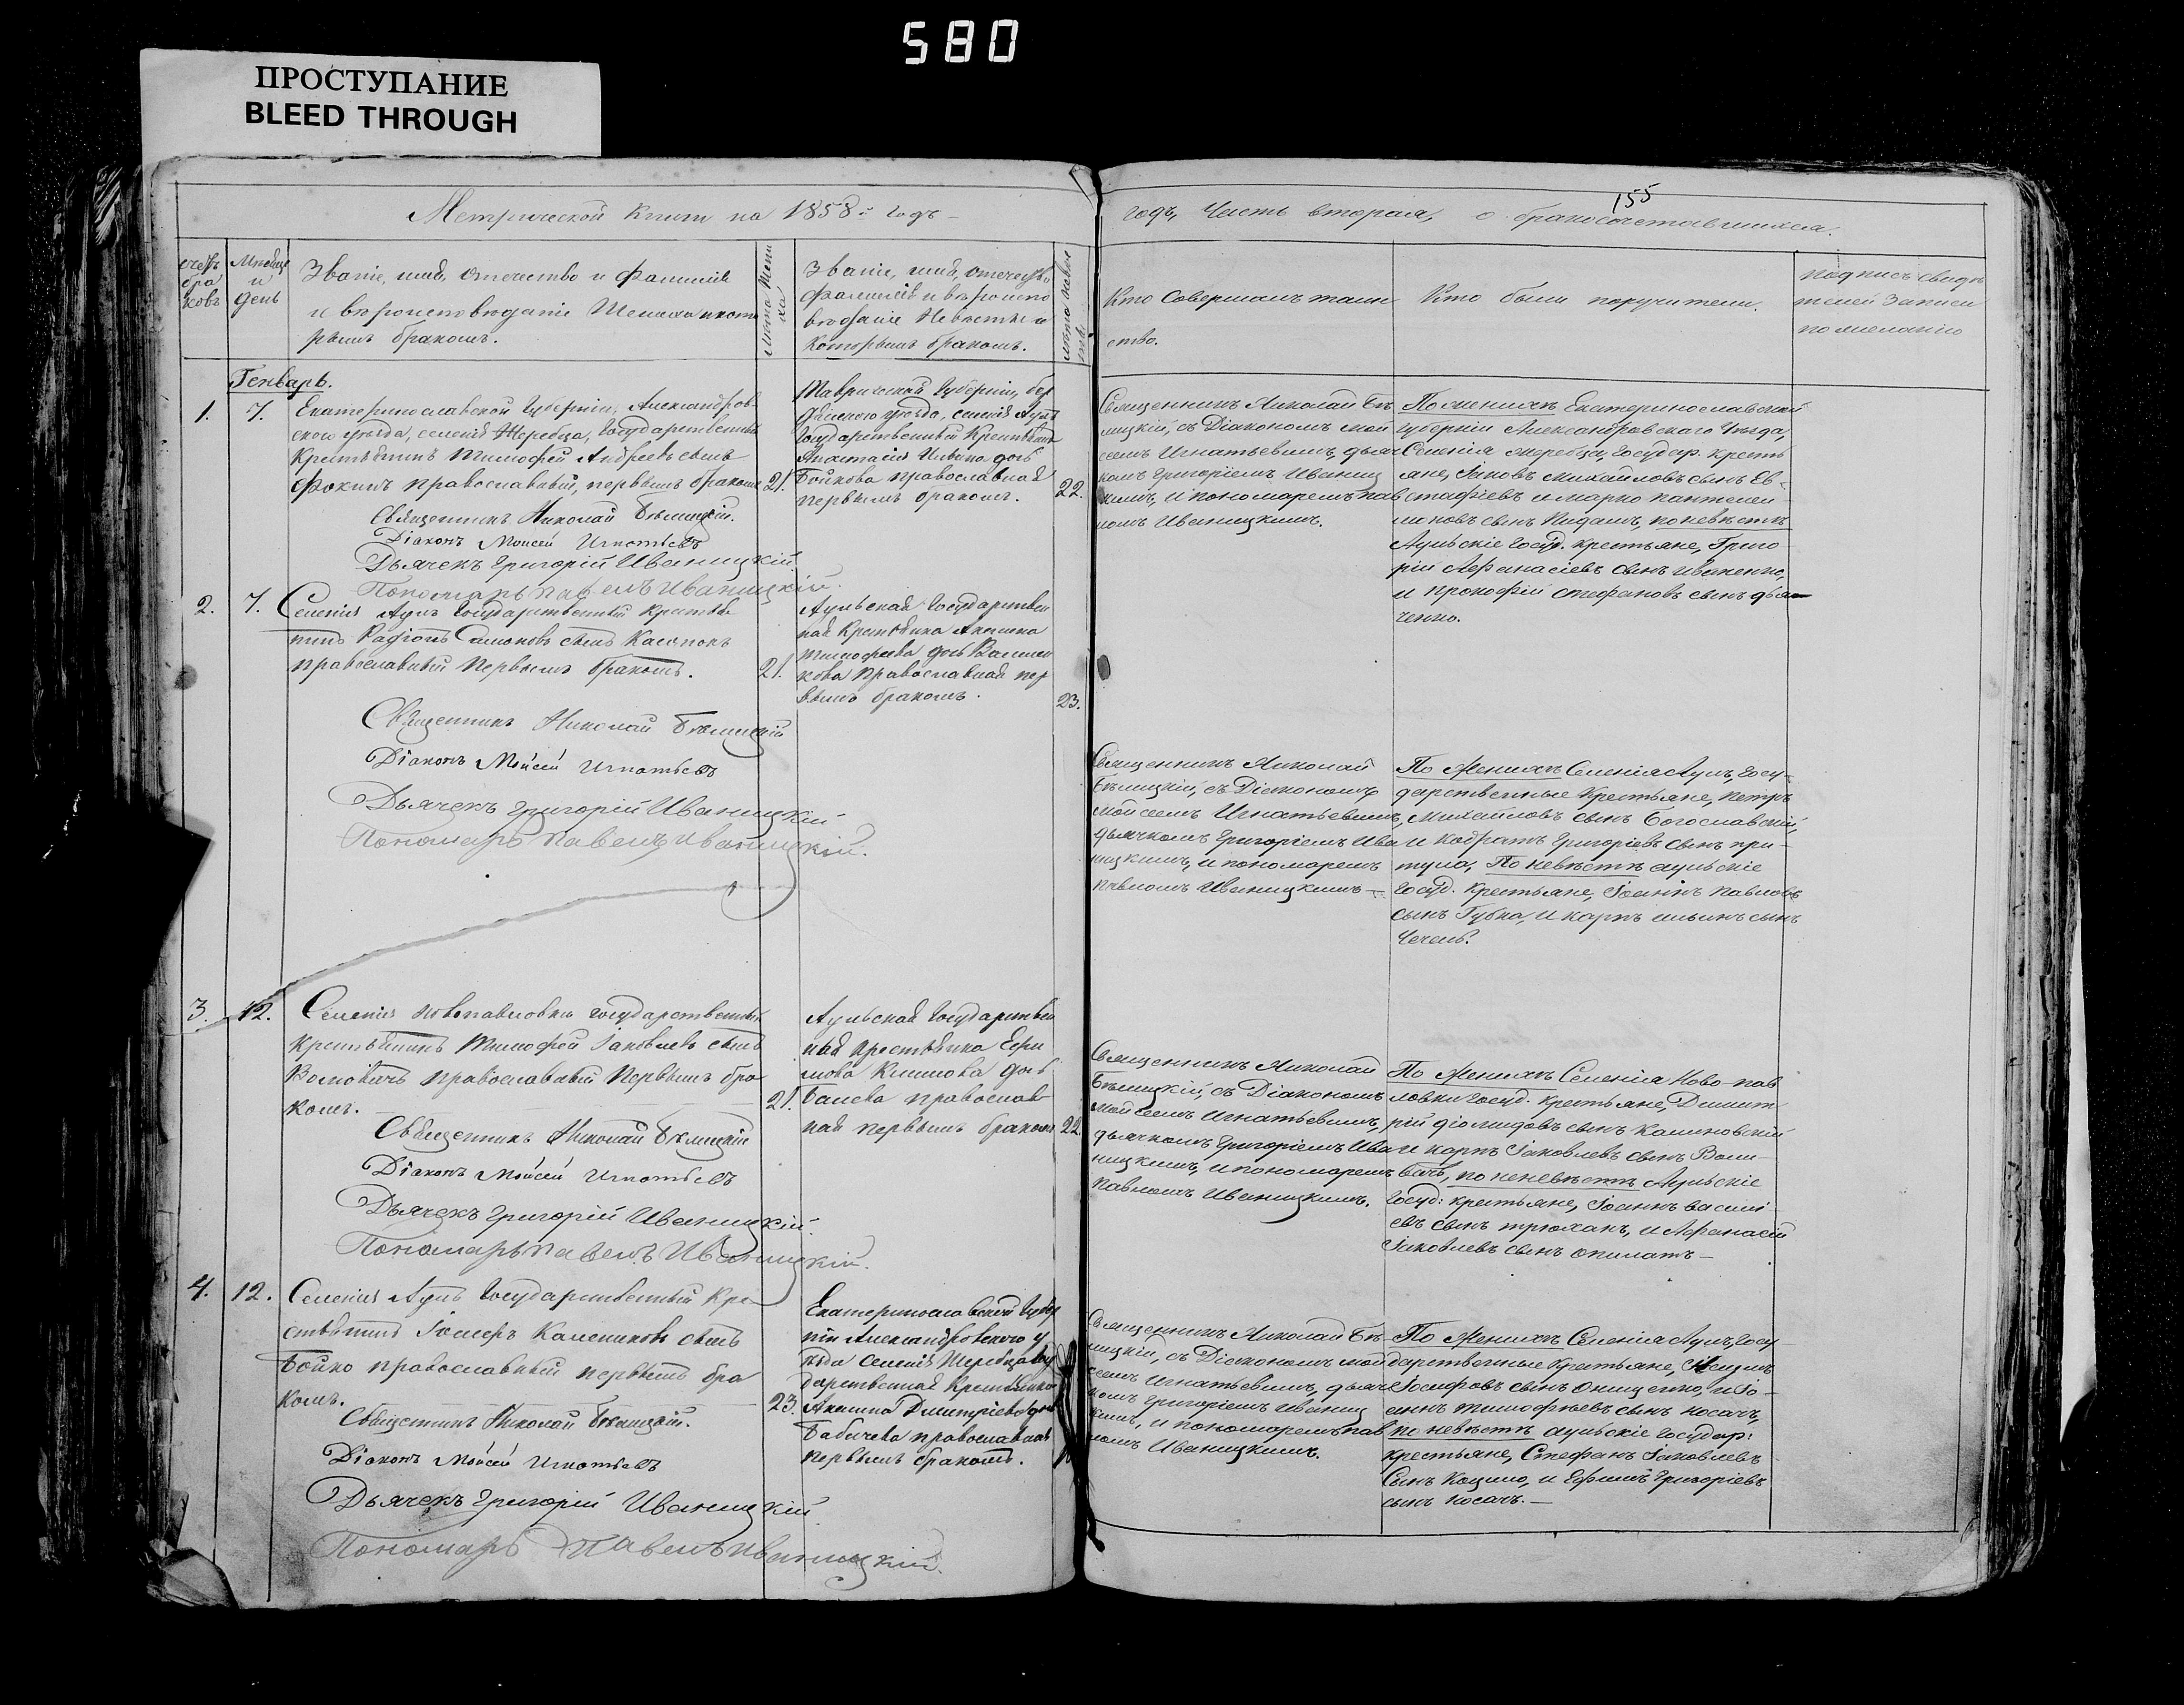 580
ПРОСТУПАНИЕ
BLEED THROUGH
155
Метрической книги на 1858й годъ
годъ, Часть вторая, о бракосочетавшихся.
Мѣсяць
и
день
Званіе, имя, отечество и фамилія
и вѣроисповѣданіе Жениха и кото
рымъ бракомъ.
Лѣта Жени
ха
Званіе, имя, отечество
фамилія и вѣроиспо
вѣданіе Невѣсты и
которымъ бракомъ.
Лѣта невѣс
ты
Кто Совершалъ таин
ство.
Кто были поручители.
подпись свидѣ
телей записи
по желанію
Генварь.
1. 7. Екатеринославской Губерніи, Александров
скаго уѣзда, селенія Жеребца, Государственный
Крестьянинъ Тимофей Андреевъ сынъ
Фокинъ православный, первымъ бракомъ
21.
Священникъ Николай Бѣлицкій.
Діаконъ Моисей Игнатьевъ
Дьячекъ Григорій Иваницкій.
Пономарь Павелъ Иваницкій.
Таврической Губерніи, бер
дянского уѣзда, селенія Аулъ
Государственный Крестьянка
Анастасія дочь
Бойкова православная
первымъ бракомъ.
22.
Священникъ Николай Бѣ
лицкій, съ Діакономъ Мои
сеемъ Игнатьевимъ, дьяч
комъ Григоріемъ Иваниц
кимъ, и пономаремъ пав
ломъ Иваницкимъ.
По женихѣ Екатеринославской
Губерніи Александровскаго Уѣзда,
Селенія жеребца, Государ. кресть
яне, Іаковъ Михайловъ сынъ Ев-
стафіевъ и марко пантелеи-
моновъ сынъ по невѣстѣ
Аульскіе Госуд. крестьяне, Григо
рій Афанасіевъ сынъ Иваненко,
и прокофій стефановъ сынъ дья
ченко.
2. 7. Селенія Аулъ Государственный Крестья
нинъ Радіонъ сынъ
православный первымъ бракомъ.
21.
Священникъ Николай Бѣлицкій
Діаконъ Мойсей Игнатьевъ
Дьячекъ Григорій Иваницкій
Пономарь Павелъ Иваницкій.
Аульская Государствен
ная Крестьянка Акилина
Тимофеева дочь
кова Православная пер
вымъ бракомъ.
23.
Священникъ Николай
Бѣлицкій, съ Діакономъ
Мойсеемъ Игнатьевимъ,
дьячкомъ Григоріемъ Ива
ницкимъ, и пономаремъ
павломъ Иваницкимъ —
По Женихѣ Селенія Аулъ, Госу-
дарственные Крестьяне, Петръ
Михайловъ сынъ Богославскій,
и Кодратъ Григоріевъ сынъ при-
тула, По невѣстѣ аульскіе
Госуд. крестьяне, Іоаннъ павловъ
сынъ Губка, и карпъ ильинъ сынъ
3. 12. Селенія Новопавловки государственный
крестьянинъ Тимофей Іаковлевъ сынъ
православный первымъ бра
комъ.
21.
Священникъ Николай Бѣлицкій
Діаконъ Мойсей Игнатьевъ
Дьячекъ Григорій Иваницкій.
Пономарь Павелъ Иваницкій.
Аульская Государствен
ная крестьянка Ефи
мова Климова дочь
православ
ная первымъ бракомъ
22.
Священникъ Николай
Бѣлицкій, съ Діакономъ
Мойсеемъ Игнатьевимъ,
дьячкомъ Григоріемъ Ива
ницкимъ, и пономаремъ
Павломъ Иваницкимъ.
По Женихѣ Селенія Ново-пав
ловки Госуд. крестьяне, Димит
рій діомидовъ сынъ Калиновскій
и карпъ Іаковлевъ сынъ
по невѣстѣ Аульскіе
Госуд: крестьяне, Іоаннъ василі
евъ сынъ трюханъ, и Афанасій
Іаковлевъ сынъ
4. 12. Селенія Аулъ Государственный Кре
стьянинъ сынъ
Бойко православный первымъ бра
комъ.
23.
Священникъ Николай Бѣлицкій.
Діаконъ Мойсей Игнатьевъ
Дьячекъ Григорій Иваницкій
Пономарь Павелъ Иваницкій.
Екатеринославской Губер
ніи Александровского у
ѣзда селенія Жеребца Госу
дарственная Крестьянка
Акилина Дмитріева дочь
Бабичева православная
первымъ бракомъ.
Священникъ Николай Бѣ
лицкій, съ Діакономъ Мой
сеемъ Игнатьевимъ, дьяч
комъ Григоріемъ Иваниц
кимъ, и пономаремъ пав
ломъ Иваницкимъ.
По Женихѣ Селенія Аулъ, Госу
дарственные крестьяне,
Іосифовъ сынъ Онищенко, и Іо-
аннъ тимофѣевъ сынъ носачъ,
по невѣстѣ аульскіе государ:
крестьяне, Стефанъ Іаковлевъ
сынъ и Ефимъ Григоріевъ
сынъ носачъ. —